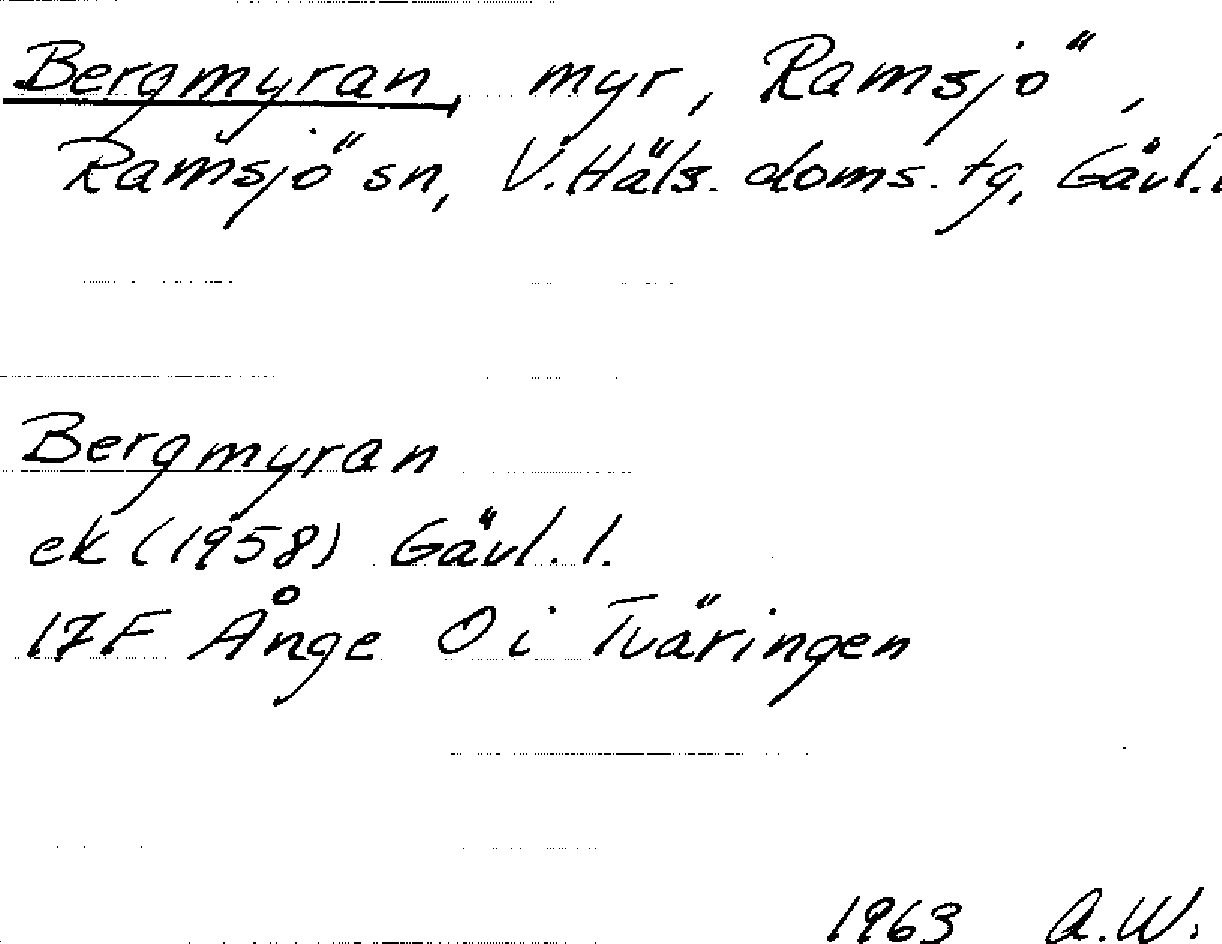 Bergmyran, myr, Ramsjö,
Ramsjö sn, V. Häls. doms. tg, Gävl. l
Bergmyran
ek (1958) Gävl. l.
17F Ånge O i Tväringen
1963 A.W.